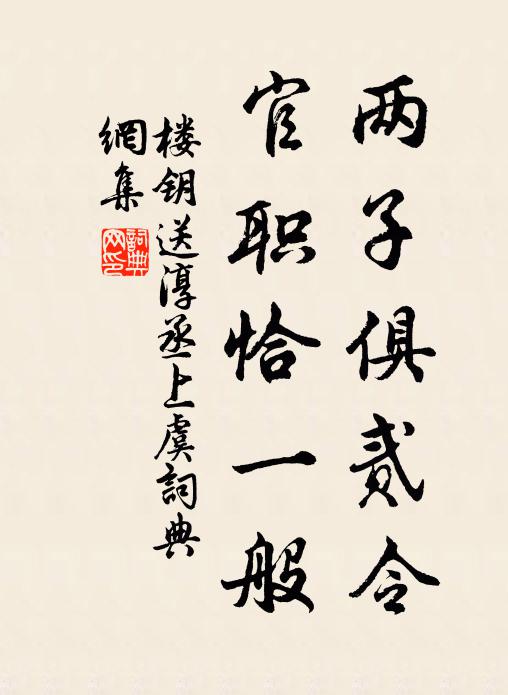 两子俱贰令
官职恰一般
楼钥送淳丞上虞詞典
網集
詞典
网印